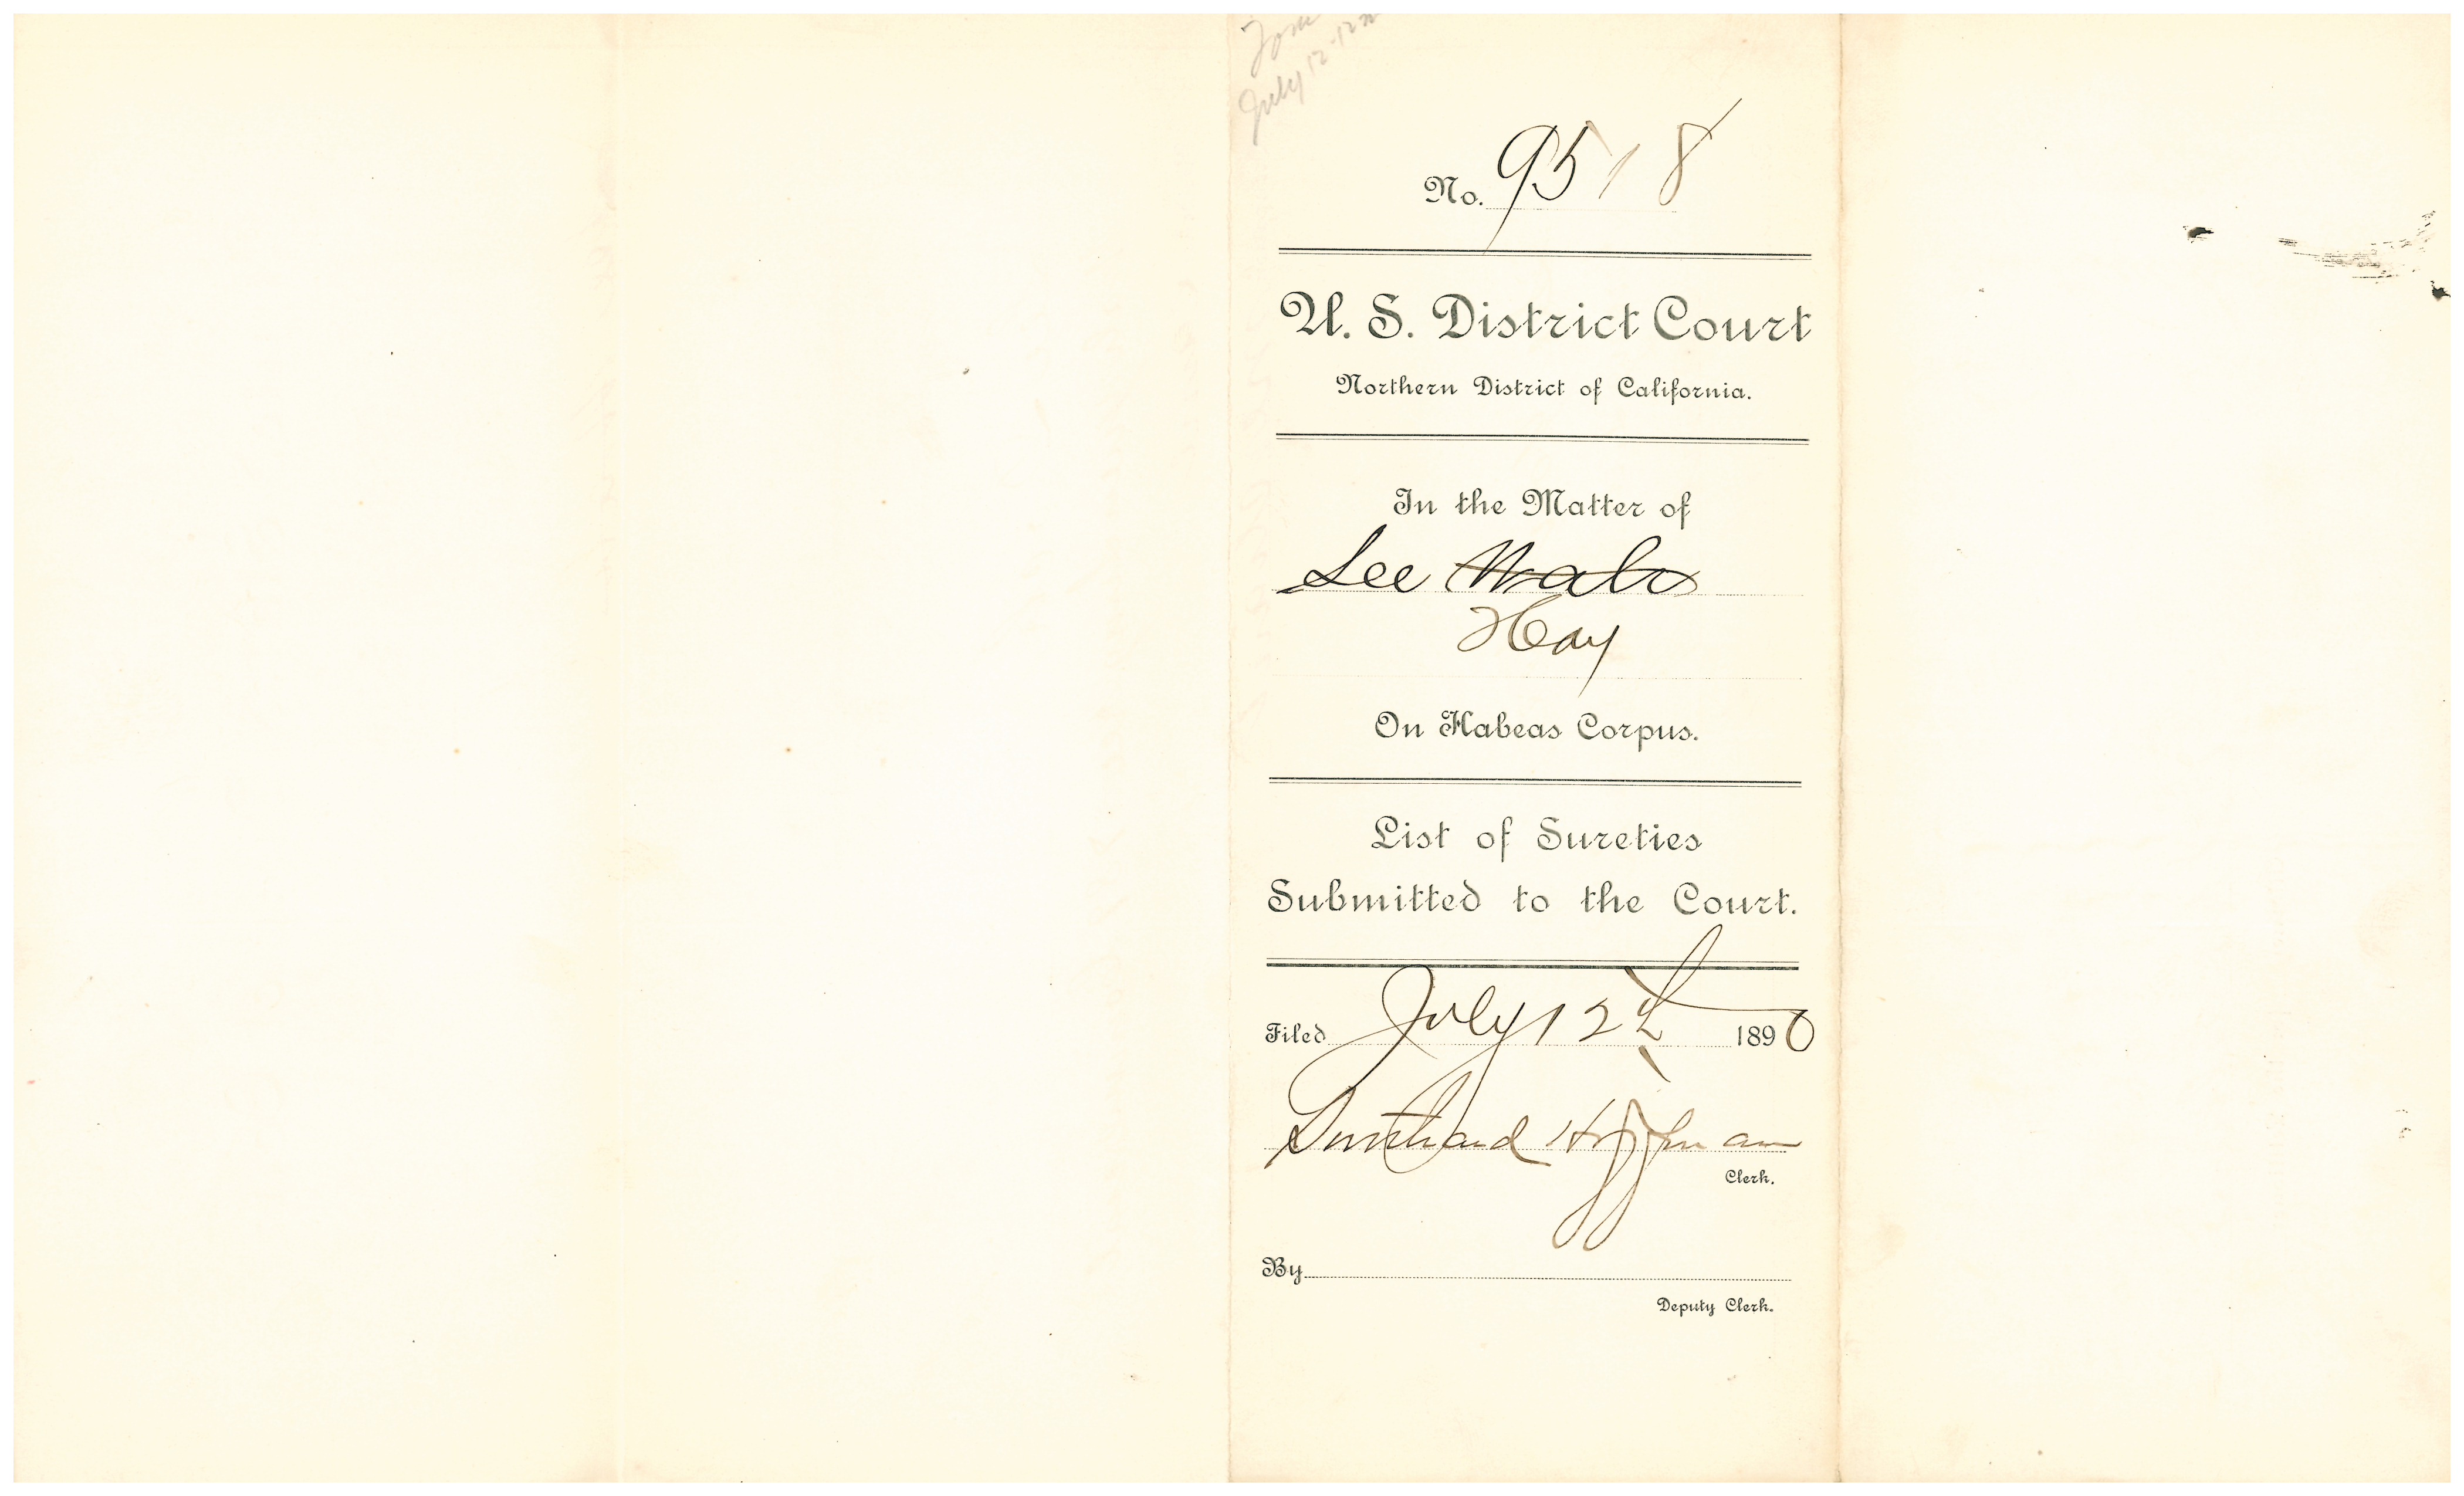 July 12
No. 9518
U. S. District Court
Northern District of California.
In the Matter of
Lee Wah
Hay
On Habeas Corpus.
List of Sureties
Submitted to the Court.
Filed July 12th 1890
Southard Hoffman
Clerk.
By
Deputy Clerk.